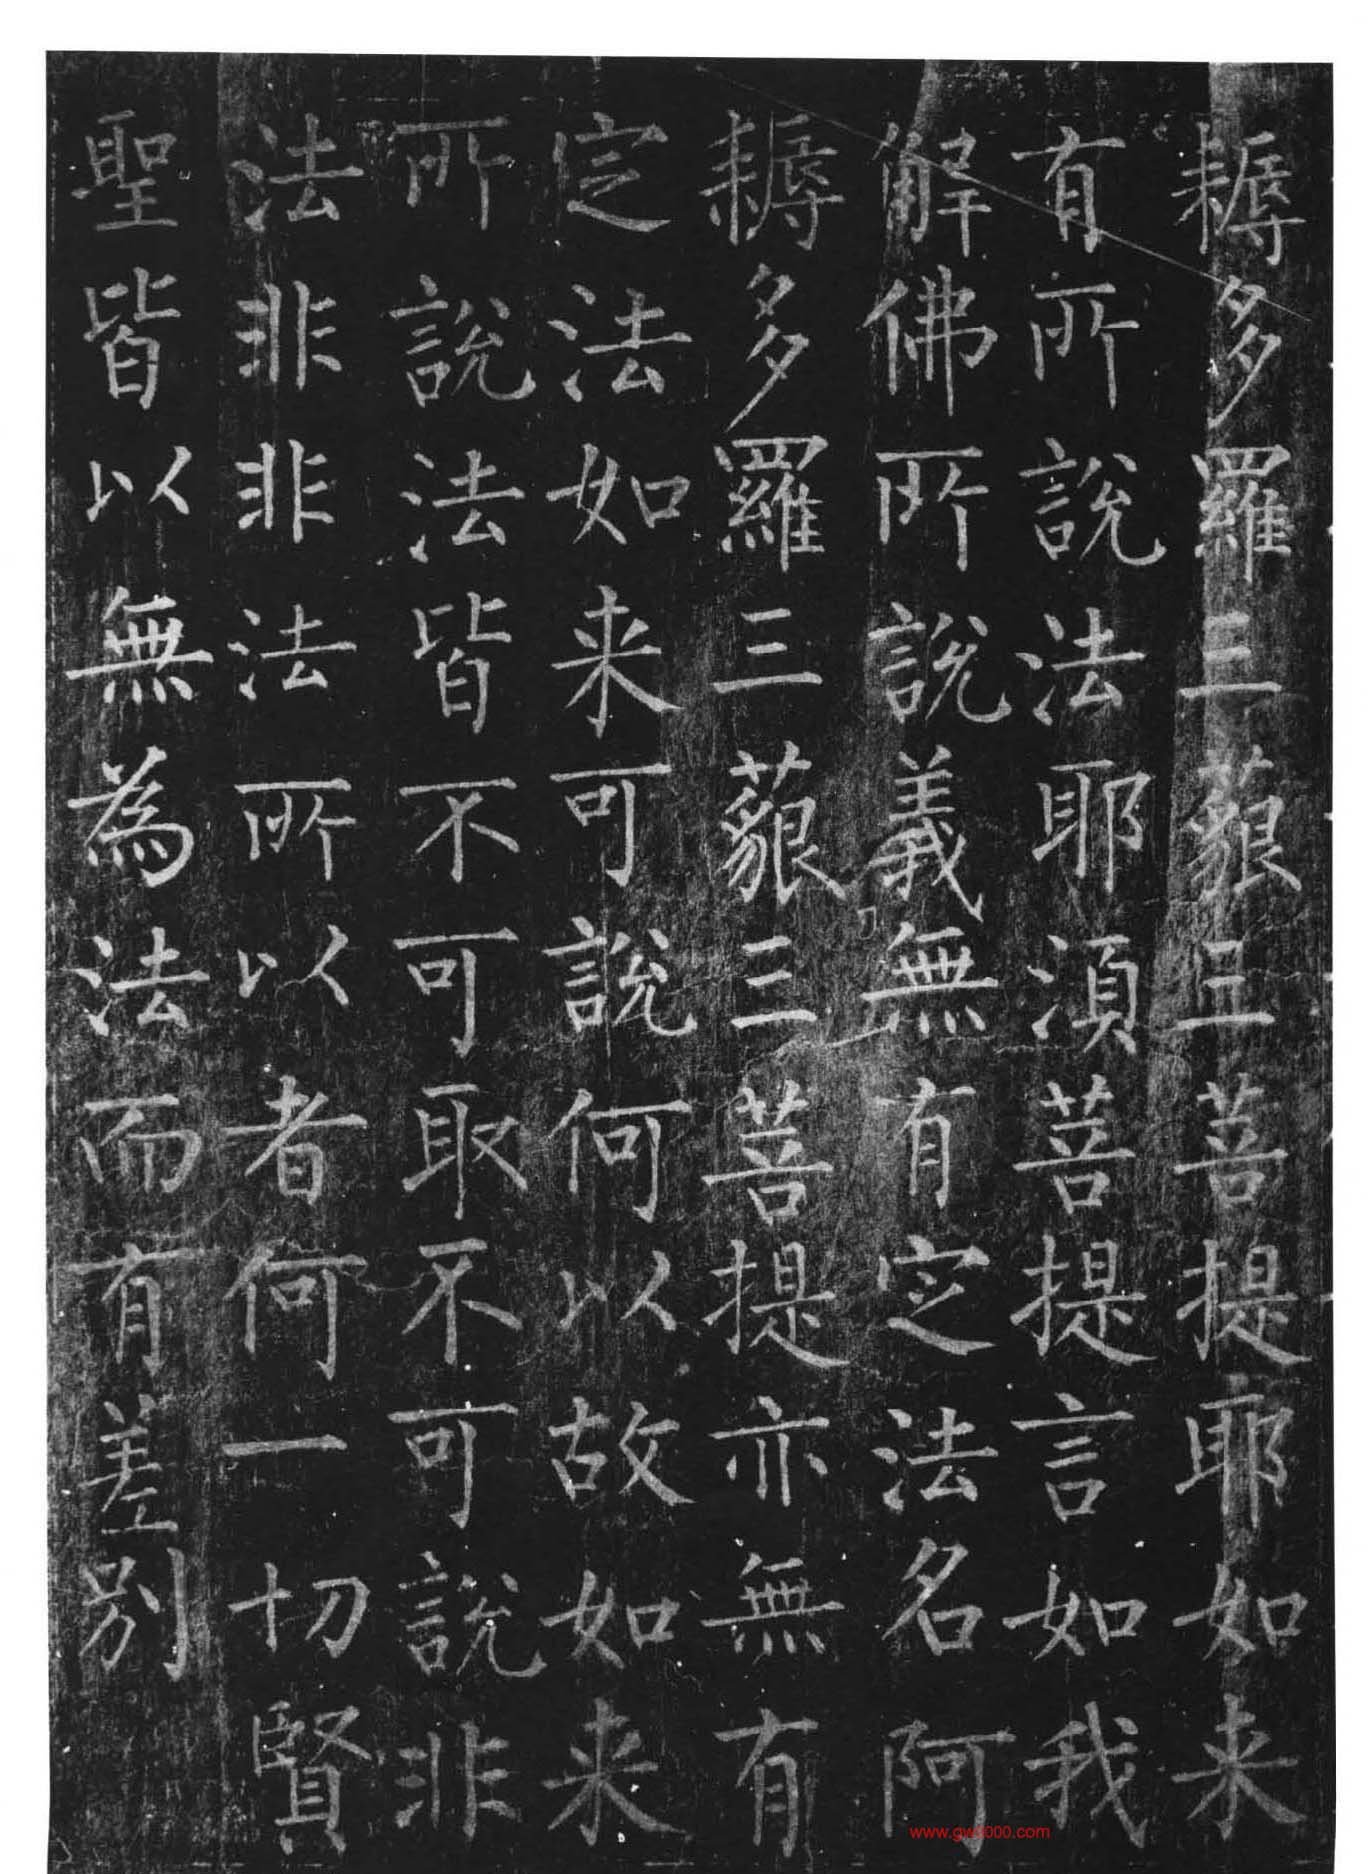 耨多羅三藐三菩提耶如来
有所說法耶湏菩提言如我
解佛所說義無有定法名阿
耨多羅三藐三菩提亦無有
定法如来可說何以故如来
所說法皆不可取不可說非
法非非法所以者何一切賢
聖皆以無為法而有差別
www.gw1000.com